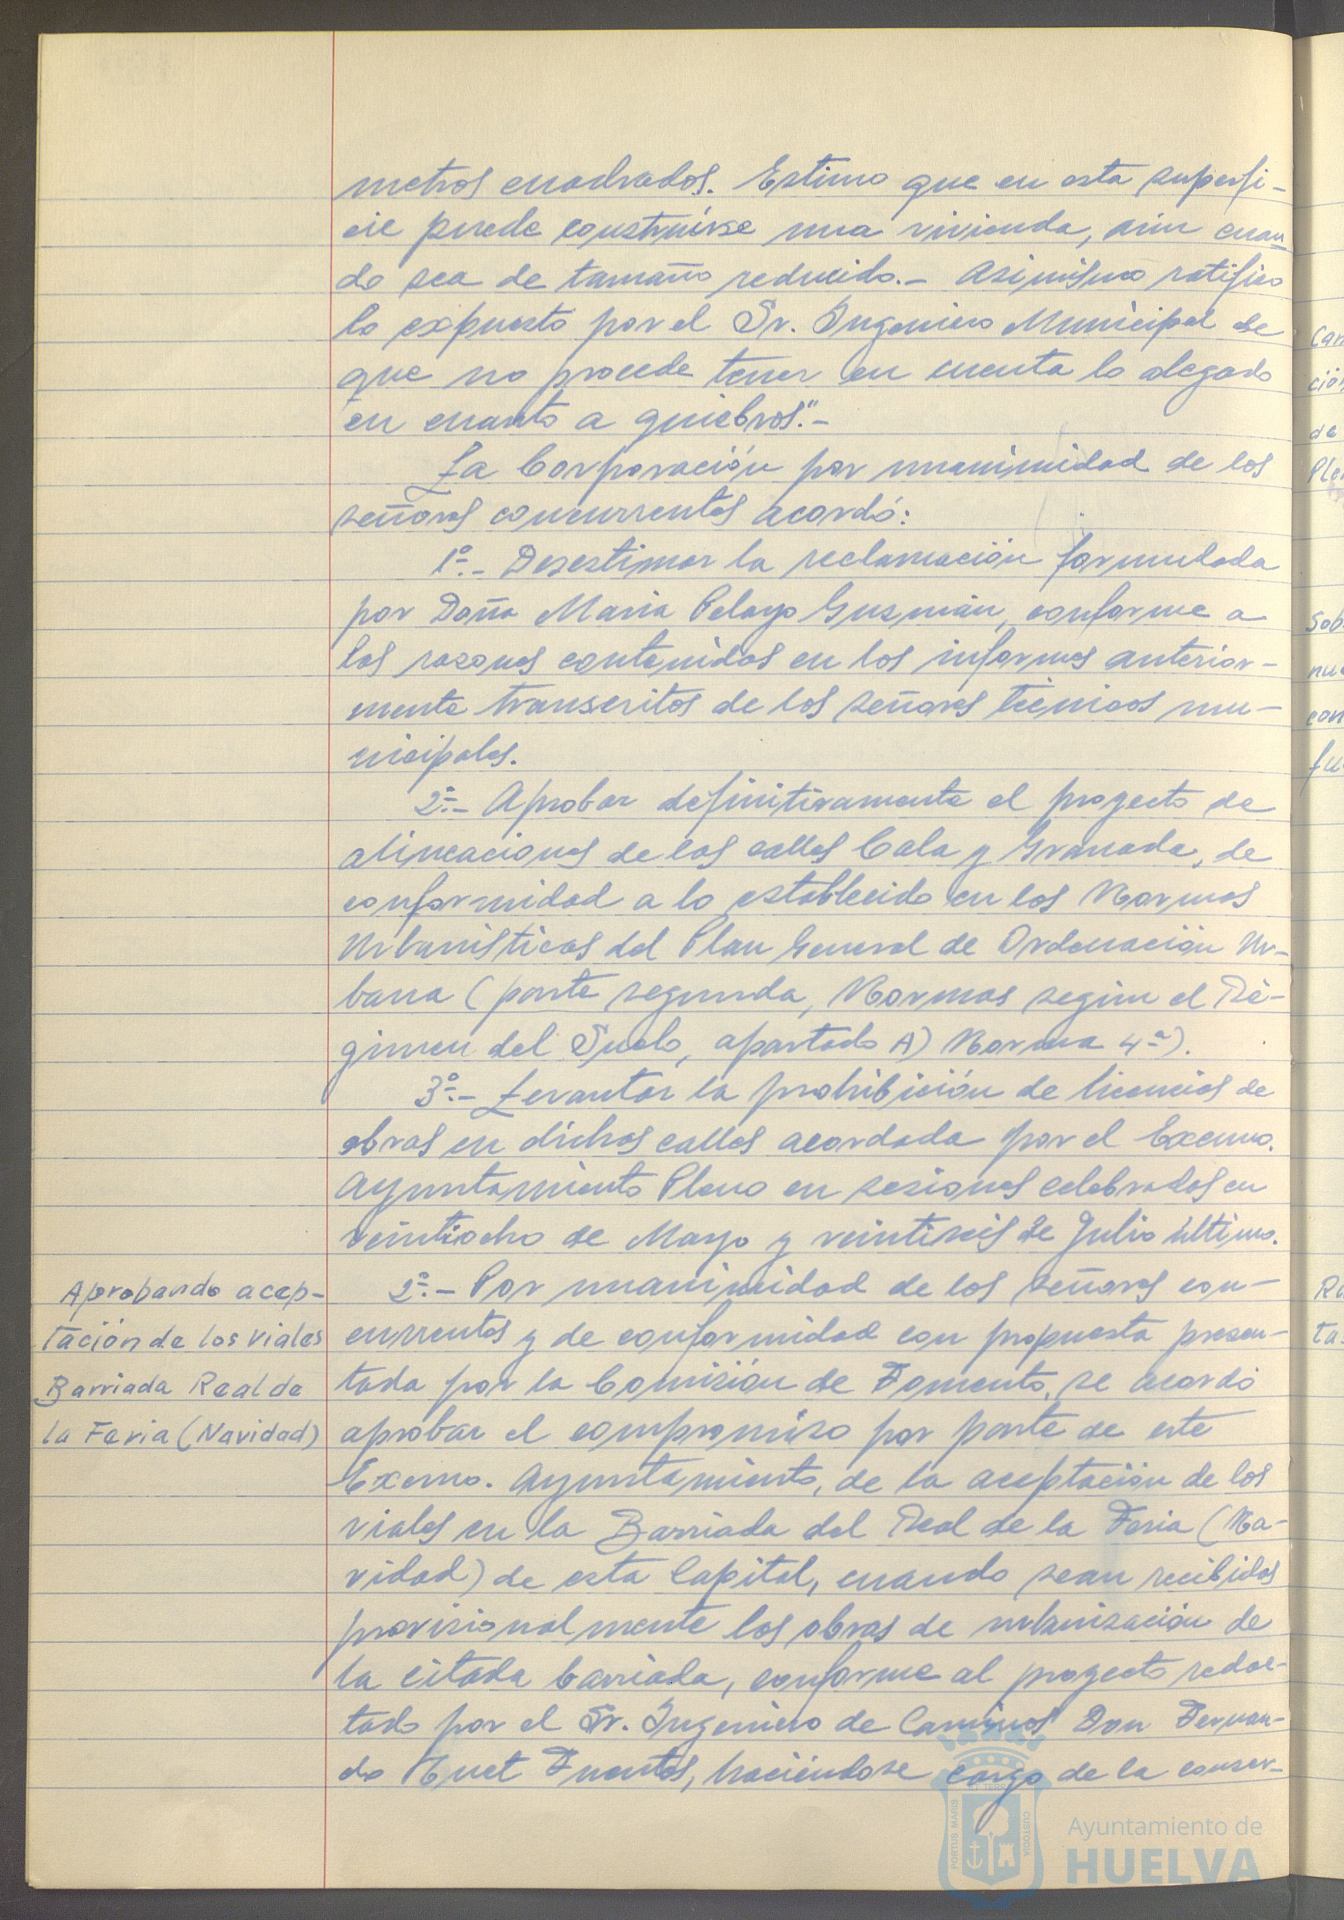 metros cuadrados. Estimo que en esta superfi-
cie puede construirse una vivienda, aún cuan
do sea de tamaño reducido.- Asimismo ratifico
lo expuesto por el Sr. Ingeniero Municipal de
que no procede tener en cuenta lo alegado
en cuanto a quiebros".-
La Corporación por unanimidad de los
señores concurrentes acordó:
1º.- Desestimar la reclamación formulada
por Doña María Pelayo Guzmán, conforme a
las razones contenidas en los informes anterior-
mente transcritos de los señores técnicos mu-
nicipales.
2º.- Aprobar definitivamente el proyecto de
alineaciones de las calles Cala y Granada, de
conformidad a lo establecido en las Normas
Urbanísticas del Plan General de Ordenación Ur-
bana (parte segunda, Normas según el Ré-
gimen del Suelo, apartado A) Norma 4ª).
3º.- Levantar la prohibición de licencias de
obras en dichas calles acordada por el Excmo.
Ayuntamiento Pleno en sesiones celebradas en
veintiocho de Mayo y veintiseis de Julio último.
Aprobando acep-
tación de los viales
Barriada Real de
la Feria (Navidad)
2º.- Por unanimidad de los señores con-
currentes y de conformidad con propuesta presen-
tada por la Comisión de Fomento, se acordó
aprobar el compromiso por parte de este
Excmo. Ayuntamiento, de la aceptación de los
viales en la Barriada del Real de la Feria (Na-
vidad) de esta Capital, cuando sean recibidas
provisionalmente las obras de urbanización de
la citada barriada, conforme al proyecto redac-
tado por el Sr. Ingeniero de Caminos Don Fernan-
do Fuentes, haciéndose cargo de la conser-
Can
ción
de
Sob
con
PORTUS MARIS
CUSTODIA
Ayuntamiento de
HUELVA